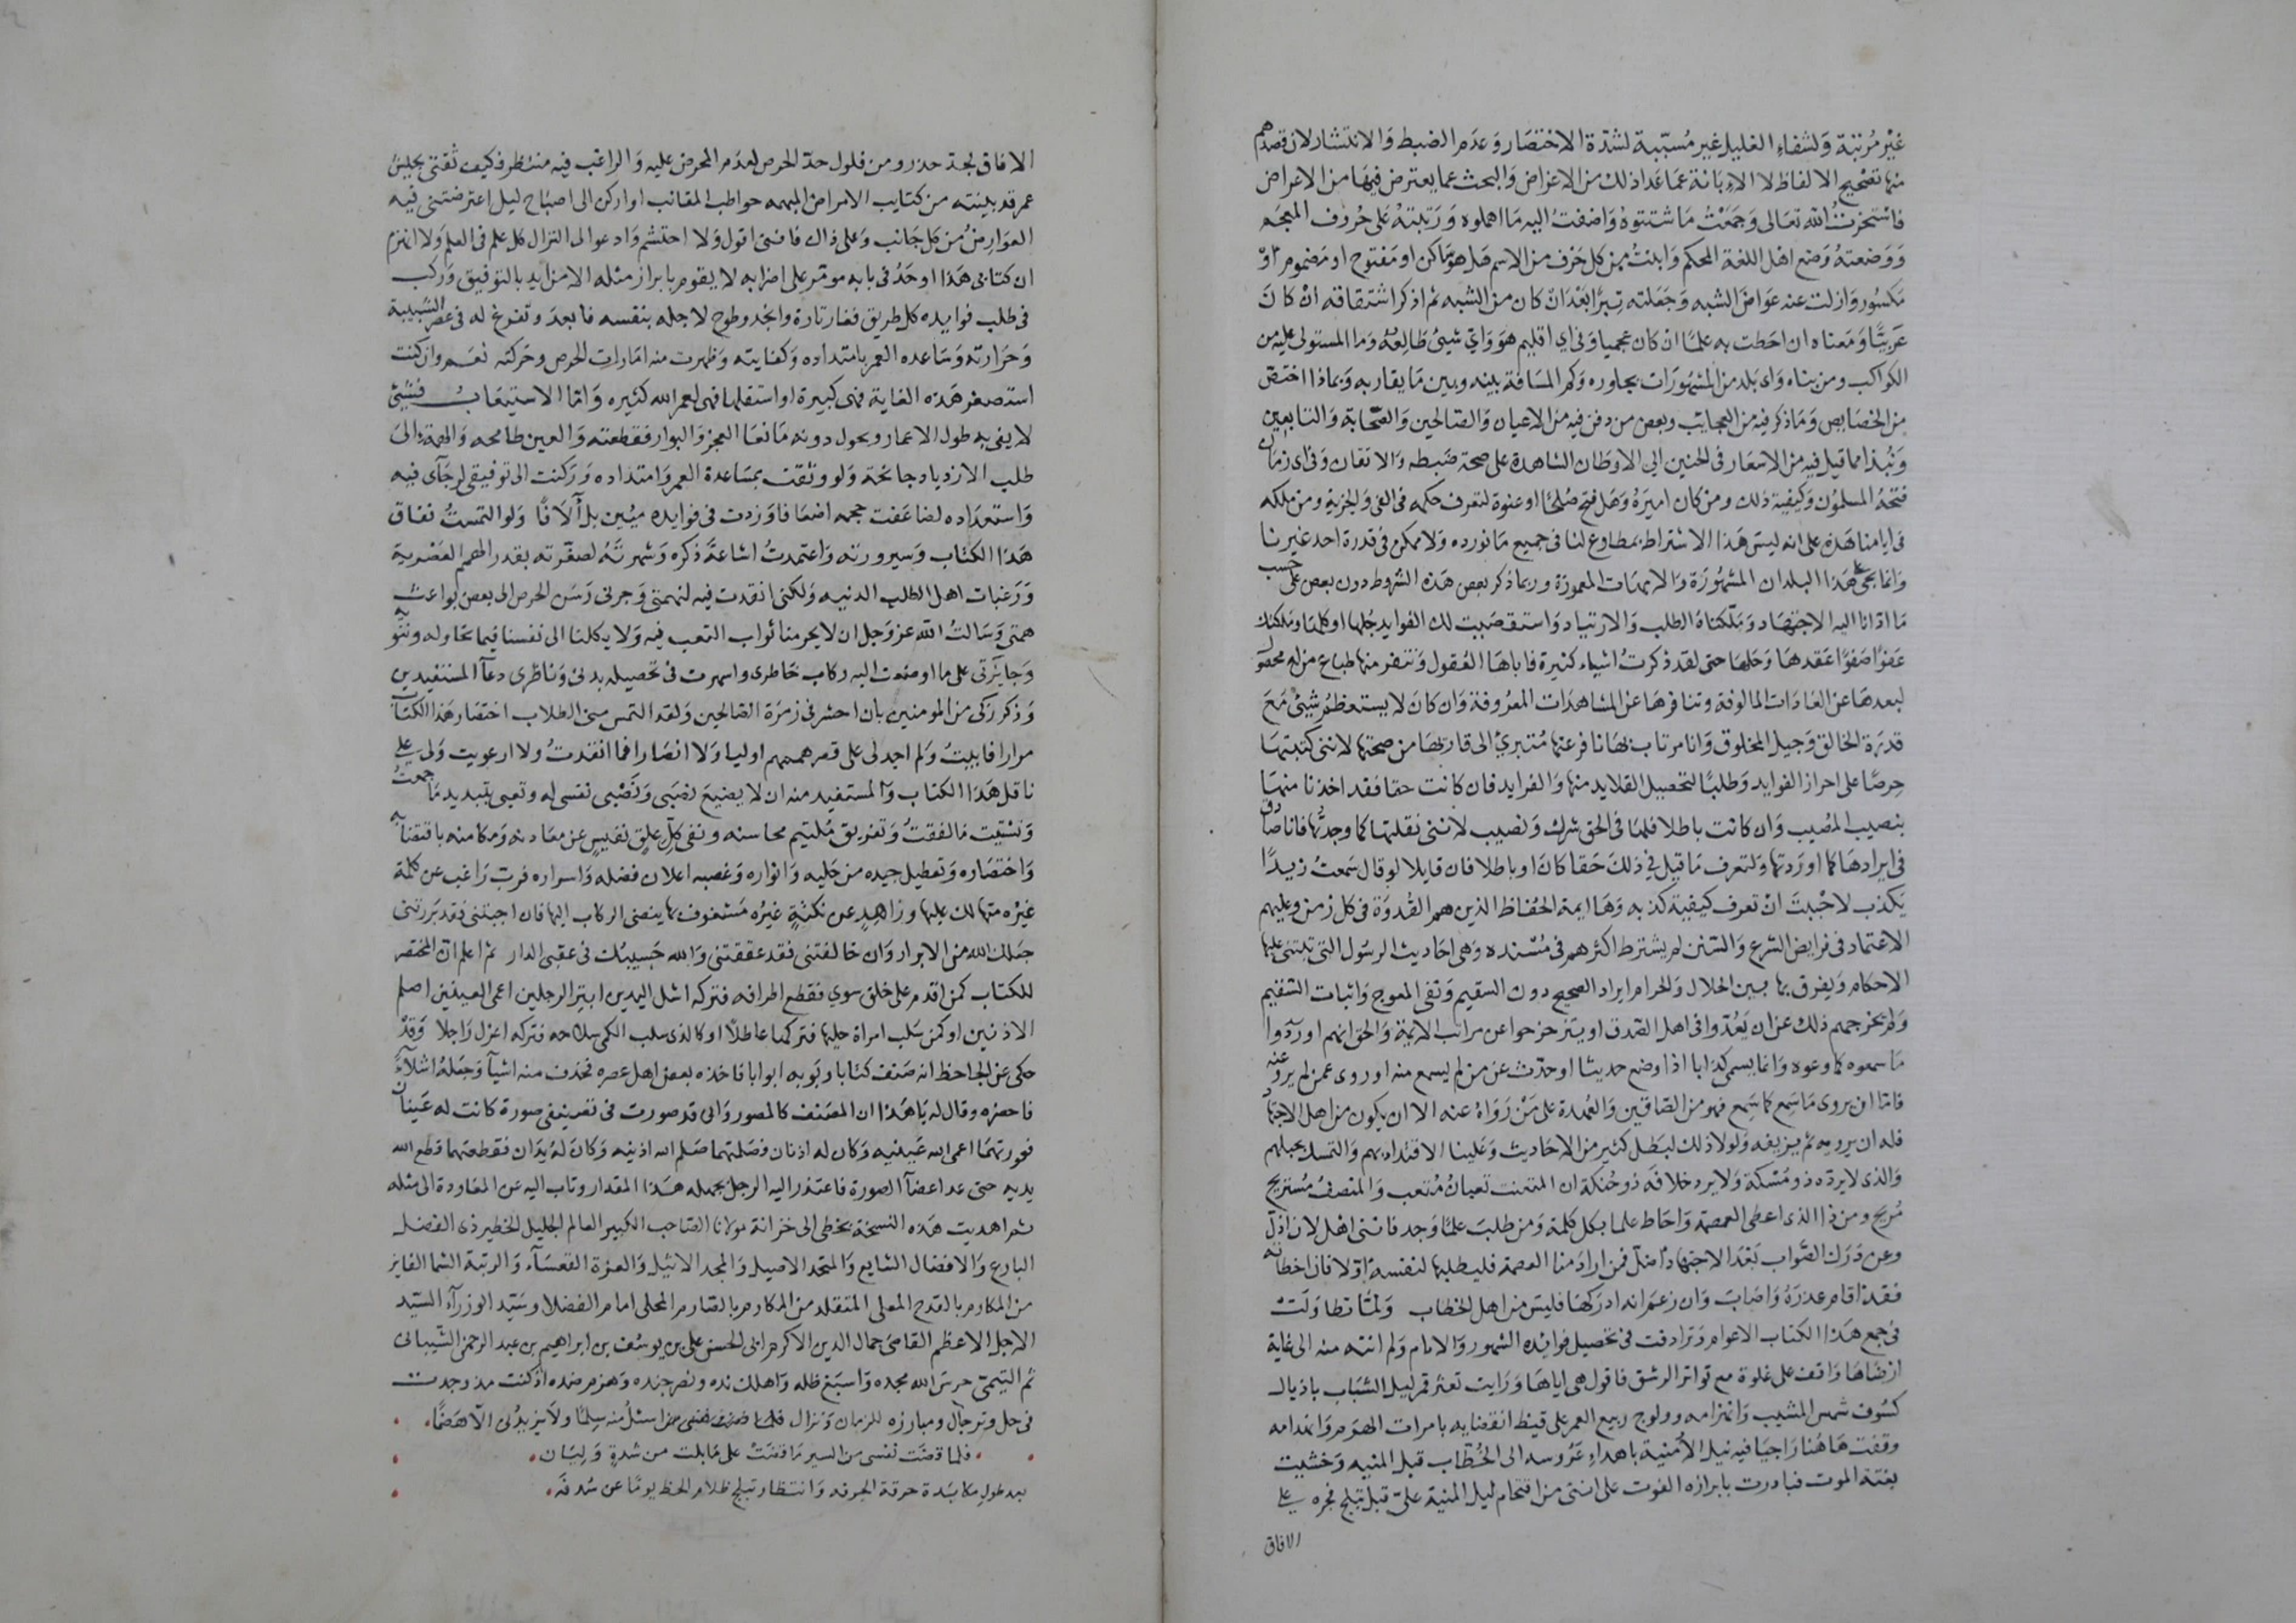 غير مرتبة ولشفاء الغليل غير مسببة لشدة الاختصار وعدم الضبط والانتشار لان قصدهم
منها تصحيح الالفاظ لا الابانة عما عدا ذلك من الاغراض والبحث عما يعترض فيها من الاعراض
فاستخرت الله تعالى وجمعت ما شتتوه واضفت اليه ما اهملوه ورتبته على حروف المعجم
ووضعته وضع اهل اللغة المحكم وابنت عن كل حرف من الاسم هل هو ساكن او مفتوح او مضموم او
مكسور وازلت عنه عوارض الشبه وجعلته تبرا بعد ان كان من الشبه ثم اذكر اشتقاقه ان كان
عربيا ومعناه ان احطت به علما ان كان عجميا وفي اي اقليم هو واي شيئ طالعه وما المستولى عليه من
الكواكب ومن بناه واى بلد من المشهورات يجاوره وكم المسافة بينه وبين ما يقاربه وبماذا اختص
من الخصايص وما ذكر فيه من العجايب وبعض من دفن فيه من الاعيان والصالحين والصحابة والتابعين
ونبذا مما قيل فيه من الاشعار في الحنين الي الاوطان الشاهدة على صحة ضبطه والاتقان وفي اى زمان
فتحه المسلمون وكيفية ذلك ومن كان اميره وهل فتح صلحا او عنوة لتعرف حكمه في الفئ والجزية ومن ملكه
في ايامنا هذه على انه ليس هذا الاشتراط بمطاوع لنا في جميع ما نورده ولا ممكن في قدرة احد غيرنا
وانما يجئ على هذا البلدان المشهورة والامهات المعمورة وربما ذكر بعض هذه الشروط دون بعض على حسب
ما ادانا اليه الاجتهاد وملكناه الطلب والارتياد واستقصيت لك الفوايد جلها او كلها وملكتك
عفوا صفوا عقدها وحلها حتى لقد ذكرت اشياء كثيرة تاباها العقول وتنفر منها طباع من له محصول
لبعدها عن العادات المالوفة وتنافرها عن المشاهدات المعروفة وان كان لا يستعظم شيئ مع
قدرة الخالق وجيل المخلوق وانا مرتاب بها نافر عنها متبرئ الى قاريها من صحتها لانني كتبتها
حرصا على احراز الفوايد وطلبا لتحصيل القلايد منها والفرايد فان كانت حقا فقد اخذنا منها
بنصيب المصيب وان كانت باطلا فلها في الحق شرك ونصيب لانني نقلتها كما وجدتها فانا صادق
في ايرادها كما اوردتها ولتعرف ما قيل في ذلك حقا كان او باطلا فان قايلا لو قال سمعت زيدا
يكذب لاحببت ان تعرف كيفية كذبه وها ايمة الحفاظ الذين هم القدوة في كل زمن وعليهم
الاعتماد في فرايض الشرع والسنن لم يشترط اكثرهم في مسنده وهي احاديث الرسول التي تبتنى عليها
الاحكام ويفرق بها بين الحلال والحرام ايراد الصحيح دون السقيم ونفي المعوج واثبات المستقيم
ولم يخرجهم ذلك عن ان يعدوا في اهل الصدق او يتزحزحوا عن مراتب الايمة والحق انهم اوردوا
ما سمعوه كما وعوه وانما يسمى كذابا اذا وضع حديثا او حدث عن من لم يسمع منه او روى عمن لم يرو عنه
فاما ان يروى ما سمع كما سمع فهو من الصادقين والعهدة على من رواه عنه الا ان يكون من اهل الاجتهاد
فله ان يرويه ثم يزيفه ولولا ذلك لبطل كثير من الاحاديث وعلينا الاقتداء بهم والتمسك بحبلهم
والذى لا يرده ذو مسكة ولا يرد خلافه ذو حنكة ان المتعنت تعبان متعب والمنصف مستريح
مريح ومن ذا الذى اعطى العصمة واحاط علما بكل كلمة ومن طلب علما وجد فانني اهل لان ازل
وعن درك الصواب بعد الاجتهاد اضل فمن اراد منا العصمة فليطلبها لنفسه اولا فان اخطاته
فقد اقام عذره واصاب وان زعم انه ادركها فليس من اهل الخطاب ولما تطاولت
في جمع هذا الكتاب الاعوام وترادفت في تحصيل فوايده الشهور والايام ولم انته منه الى غاية
ارضاها واقف على غلوة مع تواتر الرشق فاقول هي اياها ورايت تعثر قمر ليل الشباب باذيال
كسوف شمس المشيب وانهزامه وولوج ربيع العمر على قيظ انقضايه بامارات الهرم وانهدامه
وقفت هاهنا راجيا فيه نيل الامنية باهداء عروسه الى الخطاب قبل المنيه وخشيت
بغتة الموت فبادرت بابرازه الفوت على انني من اقتحام ليل المنية على قبل تبلج فجره على
الافاق
الافاق لجد حذر ومن فلول حد الحرص لعدم المحرض عليه والراغب فيه منتظر فكيف ثقتي بجيش
عمر قد بيته من كتايب الامراض المبهمه حواطب المقانب او اركن الى اصباح ليل اعترضتني فيه
العوارض من كل جانب وعلى ذاك فانني اقول ولا احتشم وادعو الى النزال كل علم في العلم ولا انهزم
ان كتابي هذا اوحد في بابه مؤمر على اضرابه لا يقوم بابراز مثله الا من ايد بالتوفيق وركب
في طلب فوايده كل طريق فغار تارة وانجد وطوح لاجله بنفسه فابعد وتفرغ له في عصر الشبيبة
وحرارته وساعده العمر بامتداده وكفايته وظهرت منه امارات الحرص وحركته نعم وان كنت
استصغر هذه الغاية فهى كبيرة او استقلها فهى لعمر الله كثيره واما الاستيعاب فشيئ
لا يفى به طول الاعمار ويحول دونه مانعا العجز والبوار فقطعته والعين طامحه والهمة الى
طلب الازدياد جامحه ولو وثقت بمساعدة العمر وامتداده وركنت الى توفيقي لرجآى فيه
واستعداده لضاعفت حجمه اضعافا وزدت في فوايده مئين بل آلافا ولو التمست نفاق
هذا الكتاب وسيرورته واعتمدت اشاعة ذكره وشهرته لصغرته بقدر الهمم العصرية
ورغبات اهل الطلب الدنيه ولكني انقدت فيه لنهمتي وجرني رسن الحرص الى بعض بواعث
همتي وسالت الله عز وجل ان لا يحرمنا ثواب التعب فيه ولا يكلنا الى نفسنا فيما نحاوله وننويه
وجايزتي على ما اوضعت اليه ركاب خاطرى واسهرت في تحصيله بدنى وناظرى دعآ المستفيدين
وذكر زكى من المومنين بان احشر في زمرة الصالحين ولقد التمس مني الطلاب اختصار هذا الكتاب
مرارا فابيت ولم اجد لى على قصر هممهم اوليا ولا انصارا فما انقدت ولا ارعويت ولى على
ناقل هذا الكتاب والمستفيد منه ان لا يضيع نصبي ونصبى نفسى له وتعبى بتبديد ما جمعت
وتشتيت ما لفقت وتفريق ملتيم محاسنه ونفى كل علق نفيس عن معادنه ومكامنه باقتضابه
واختصاره وتعطيل جيده من حليه وانواره وغصبه اعلان فضله واسراره فرب راغب عن كلمة
غيره متهالك عليها وزاهد عن نكتة غيره مشغوف بها ينضى الركاب اليها فان اجبتنى فقد بررتنى
جعلك الله من الابرار وان خالفتني فقد عققتني والله حسيبك في عقبى الدار ثم اعلم ان المختصر
للكتاب كمن اقدم على خلق سوي فقطع اطرافه فتركه اشل اليدين ابتر الرجلين اعمى العينين اصلم
الاذنين او كمن سلب امراة حليها فتركها عاطلا او كالذى سلب الكمى سلاحه فتركه اعزل راجلا وقد
حكى عن الجاحظ انه صنف كتابا وبوبه ابوابا فاخذه بعض اهل عصره فحذف منه اشيآ وجعله اشلآء
فاحضره وقال له يا هذا ان المصنف كالمصور واني قد صورت في تصنيفى صورة كانت له عينان
فعورتهما اعمى الله عينيه وكان له اذنان فصلمتهما صلم الله اذنيه وكان له يدان فقطعتهما قطع الله
يديه حتى عد اعضآ الصورة فاعتذر اليه الرجل بجهله هذا المقدار وتاب اليه عن المعاودة الى مثله
ثم اهديت هذه النسخة بخطى الى خزانة مولانا الصاحب الكبير العالم الجليل الخطير ذى الفضل
البارع والافضال الشايع والمحتد الاصيل والمجد الاثيل والعزة القعسآء والرتبة الشما الفايز
من المكارم بالقدح المعلى المتقلد من المكارم بالصارم المحلى امام الفضلا وسيد الوزرآء السيد
الاجل الاعظم القاضى جمال الدين الاكرم ابى الحسن على بن يوسف بن ابراهيم بن عبد الرحمن الشيبانى
ثم التيمى حرس الله مجده واسبغ ظله واهلك نده ونصر جنده وهزم ضده اذ كنت مذ وجدت
في حل وترحال ومبارزه للزمان ونزال اسئل منه سلما ولا يزيدنى الا هضما
فلما قضت نفسى من السير ما قضت على ما بلت من شدة وليان
بعد طول مكابدة حرقة الحرفه وانتظار تبلج ظلام الحظ يوما عن سدفه